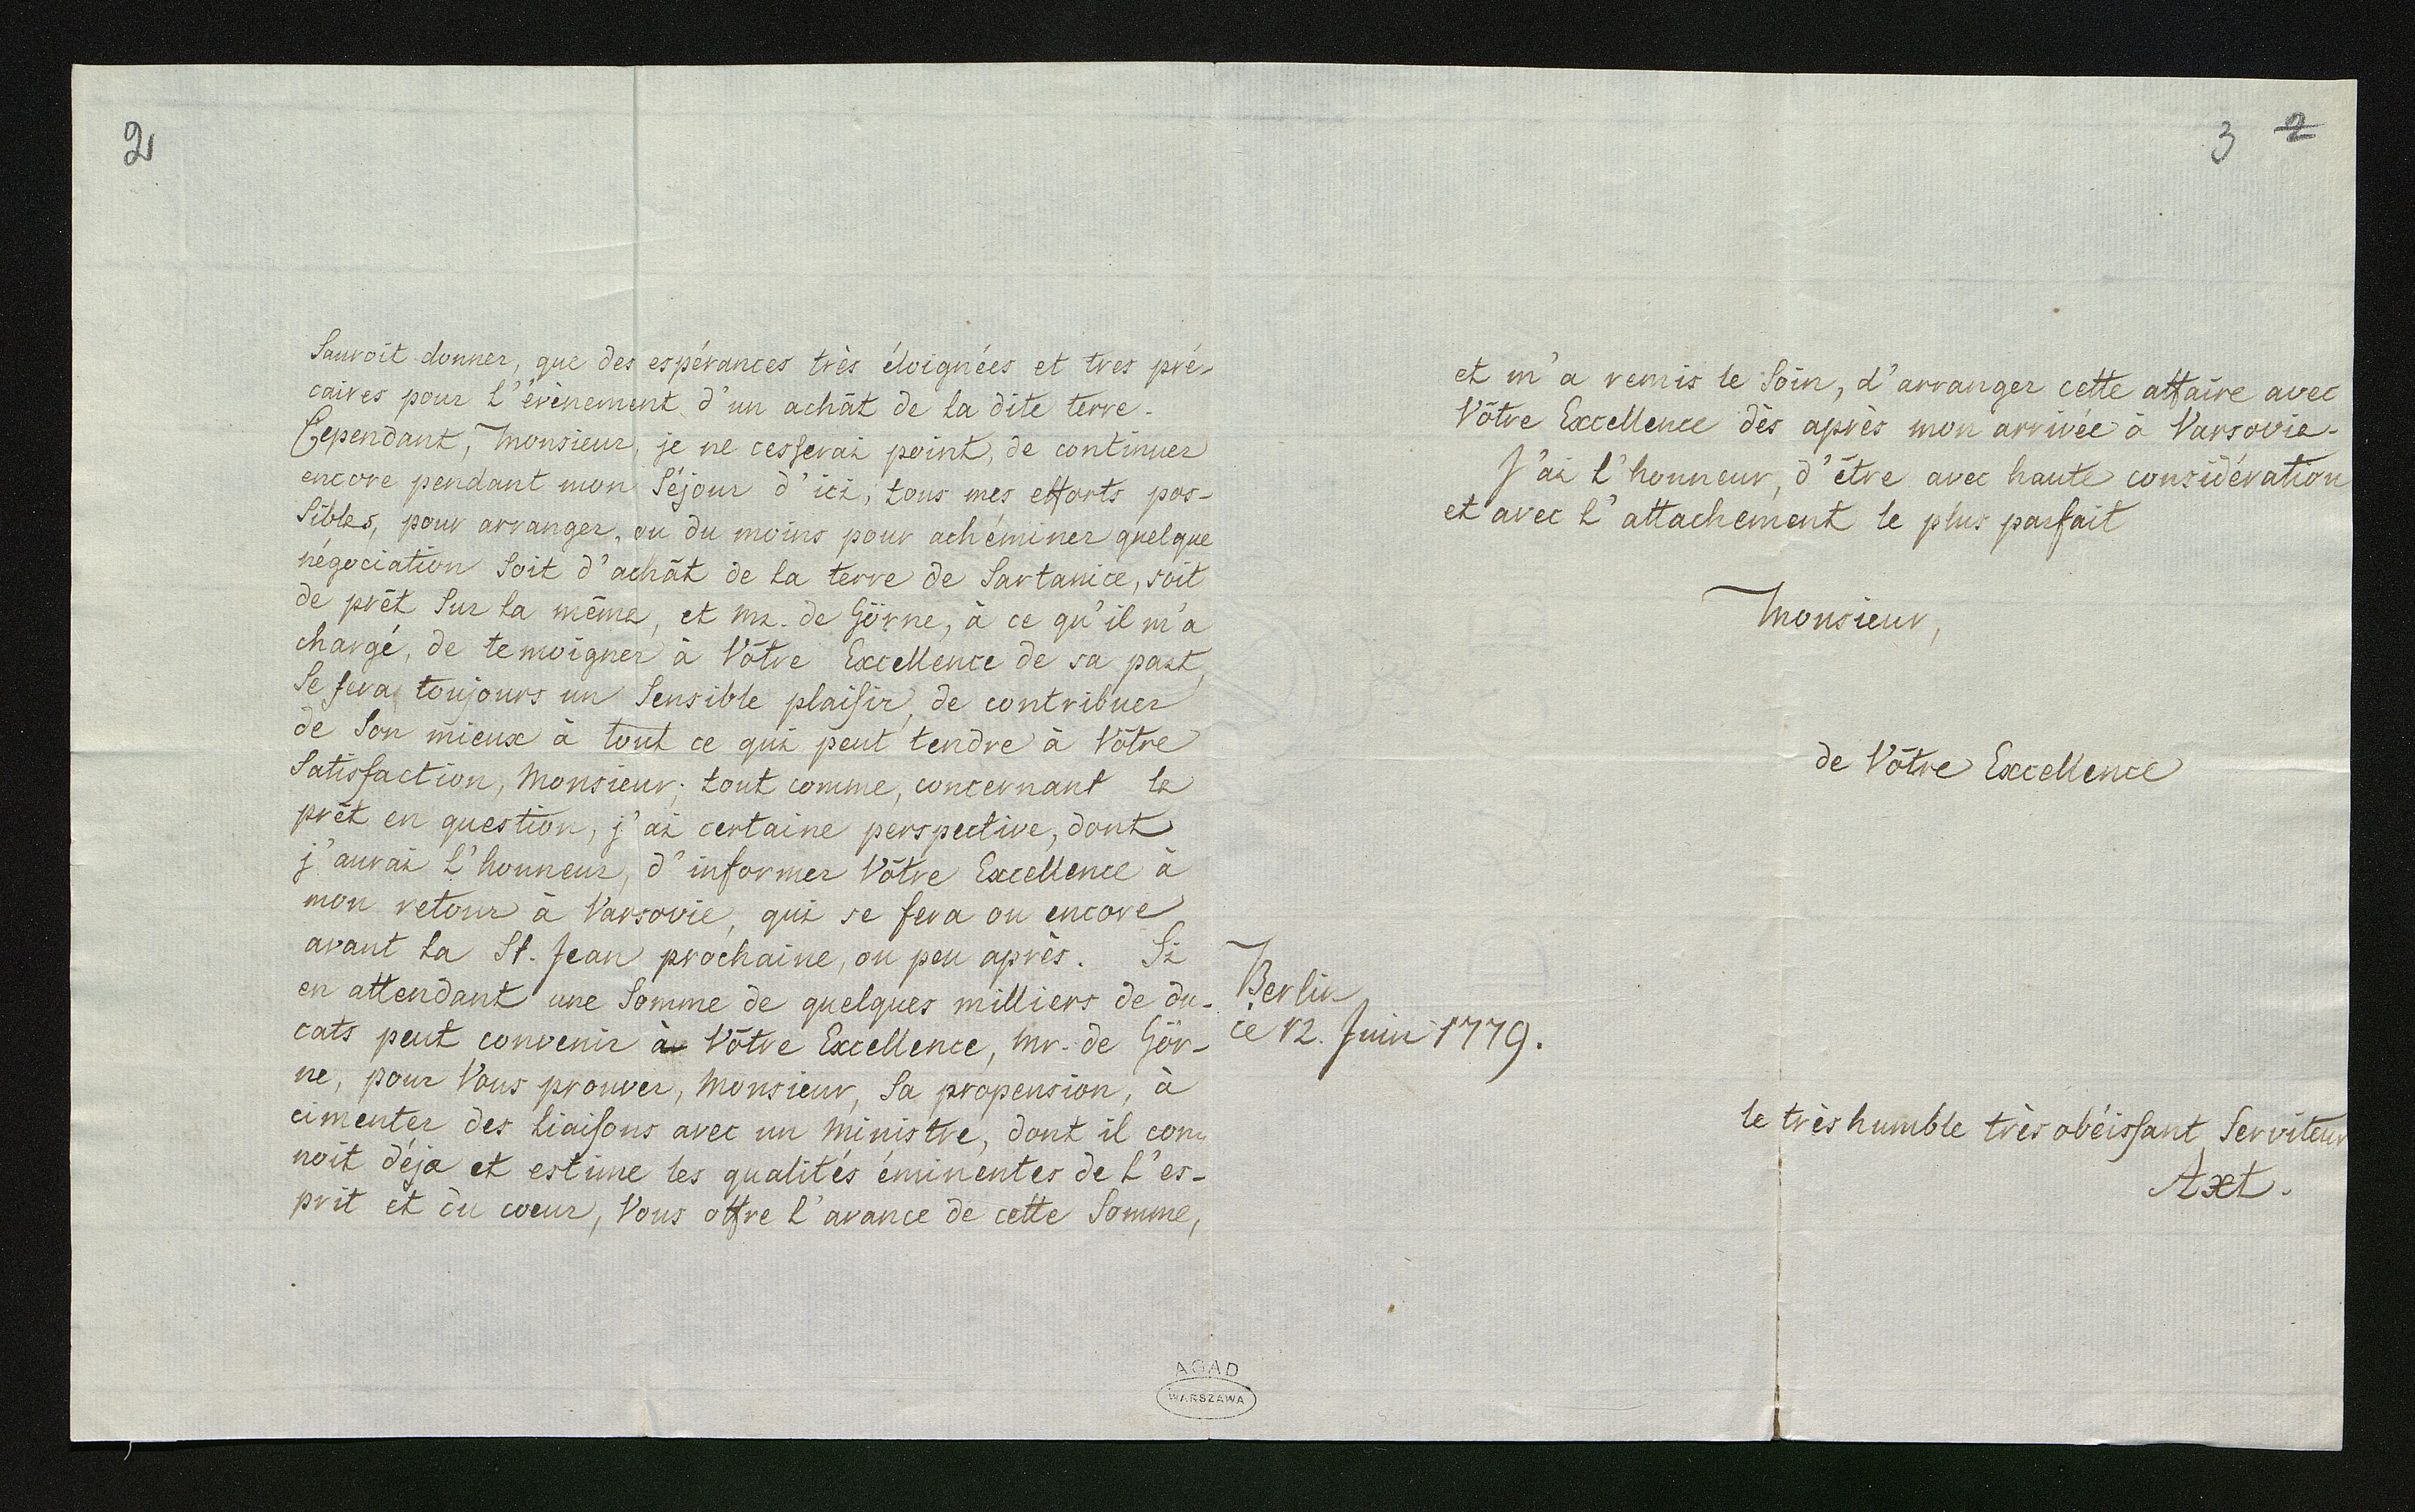 2
Sauroit donner, que des espérances très éloignées et tres pré-
caires pour l'évènement d'un achât de la dite terre.
Cependant, Monsieur, je ne cesserai point, de continuer
encore pendant mon Séjour d'ici, tous mes efforts pos-
Sibles, pour arranger, ou du moins pour achéminer quelque
négociation Soit d'achât de la terre de Sartanice, soit
de prêt Sur la même, et Mr. de Görne, à ce qu'il m'a
chargé, de temoigner à Vôtre Excellence de sa part,
Se fera toujours un Sensible plaisir, de contribuer
de Son mieux à tout ce qui peut tendre à Vôtre
Satisfaction, Monsieur; tout comme, concernant le
prêt en question, j'ai certaine perspective, dont
j'aurai l'honneur, d'informer Vôtre Excellence à
mon retour à Varsovie, qui se fera ou encore
avant la St. Jean prochaine, ou peu après. Si
en attendant une Somme de quelques milliers de du-
cats peut convenir à Vôtre Excellence, Mr. de Gör-
ne, pour Vous prouver, Monsieur, Sa propension, à
cimenter des liaisons avec un Ministre, dont il con-
noit déja et estime les qualités éminentes de l'es-
prit et du coeur, Vous offre l'avance de cette Somme,
3 2
et m'a remis le Soin, d'arranger cette affaire avec
Vôtre Excellence dès après mon arrivée à Varsovie.
J'ai l'honneur, d'être avec haute considération
et avec l'attachement le plus parfait
Monsieur,
de Vôtre Excellence
Berlin
ce 12. Juin 1779.
le très humble très obéissant Serviteur
Axt.
AGAD
WARSZAWA